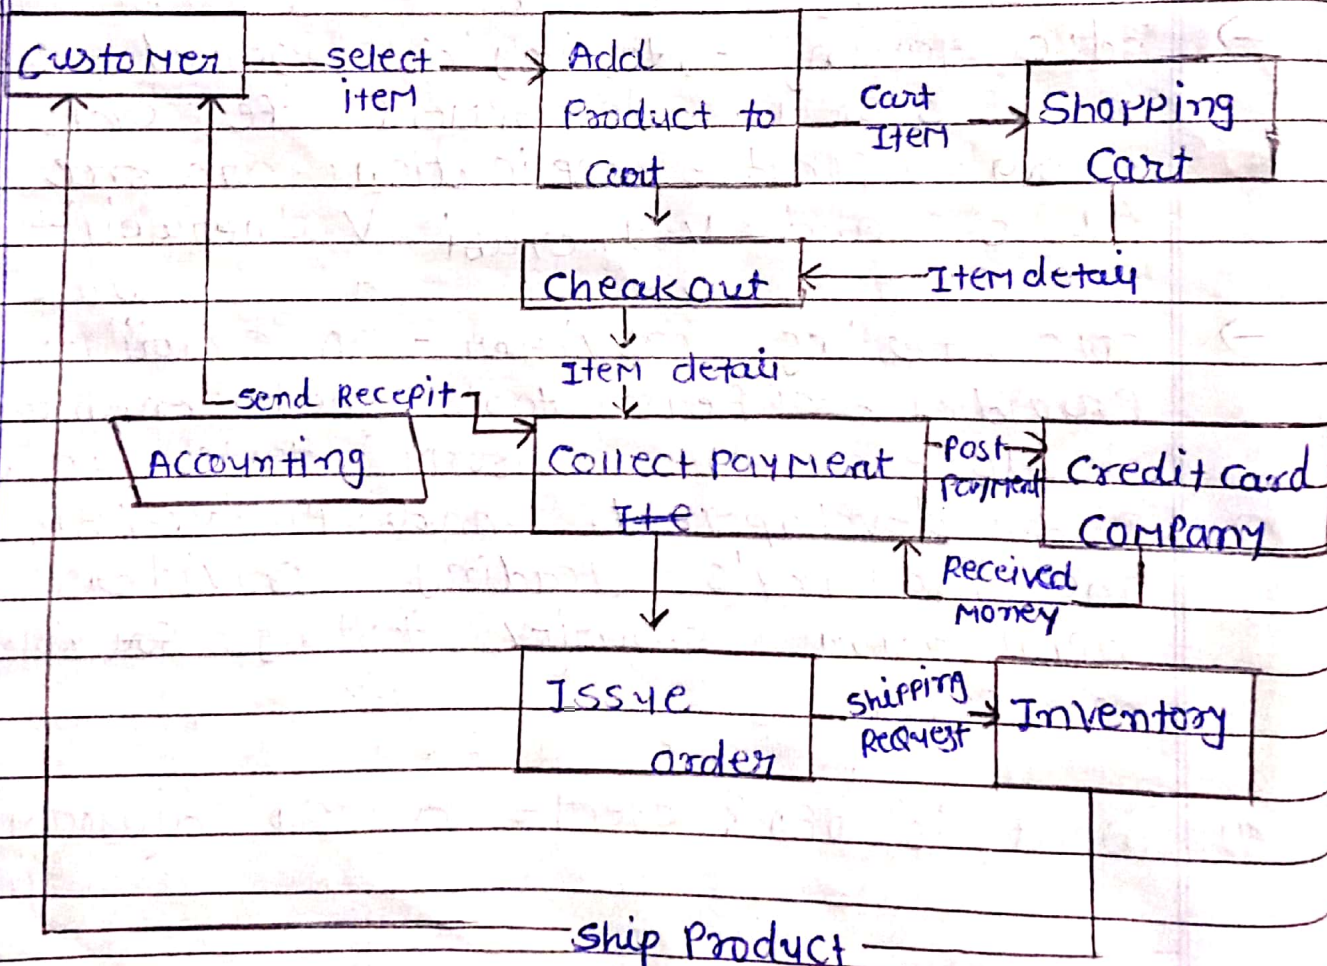 Customer
select
item
Add
Product to
Cart
Cart
Item
Shopping
Cart
Cheakout
Item detail
Item detail
Send Recepit
Accounting
Collect payment
Post
payment
Credit Card
Company
Received
Money
Issue
order
Shipping
Request
Inventory
Ship Product